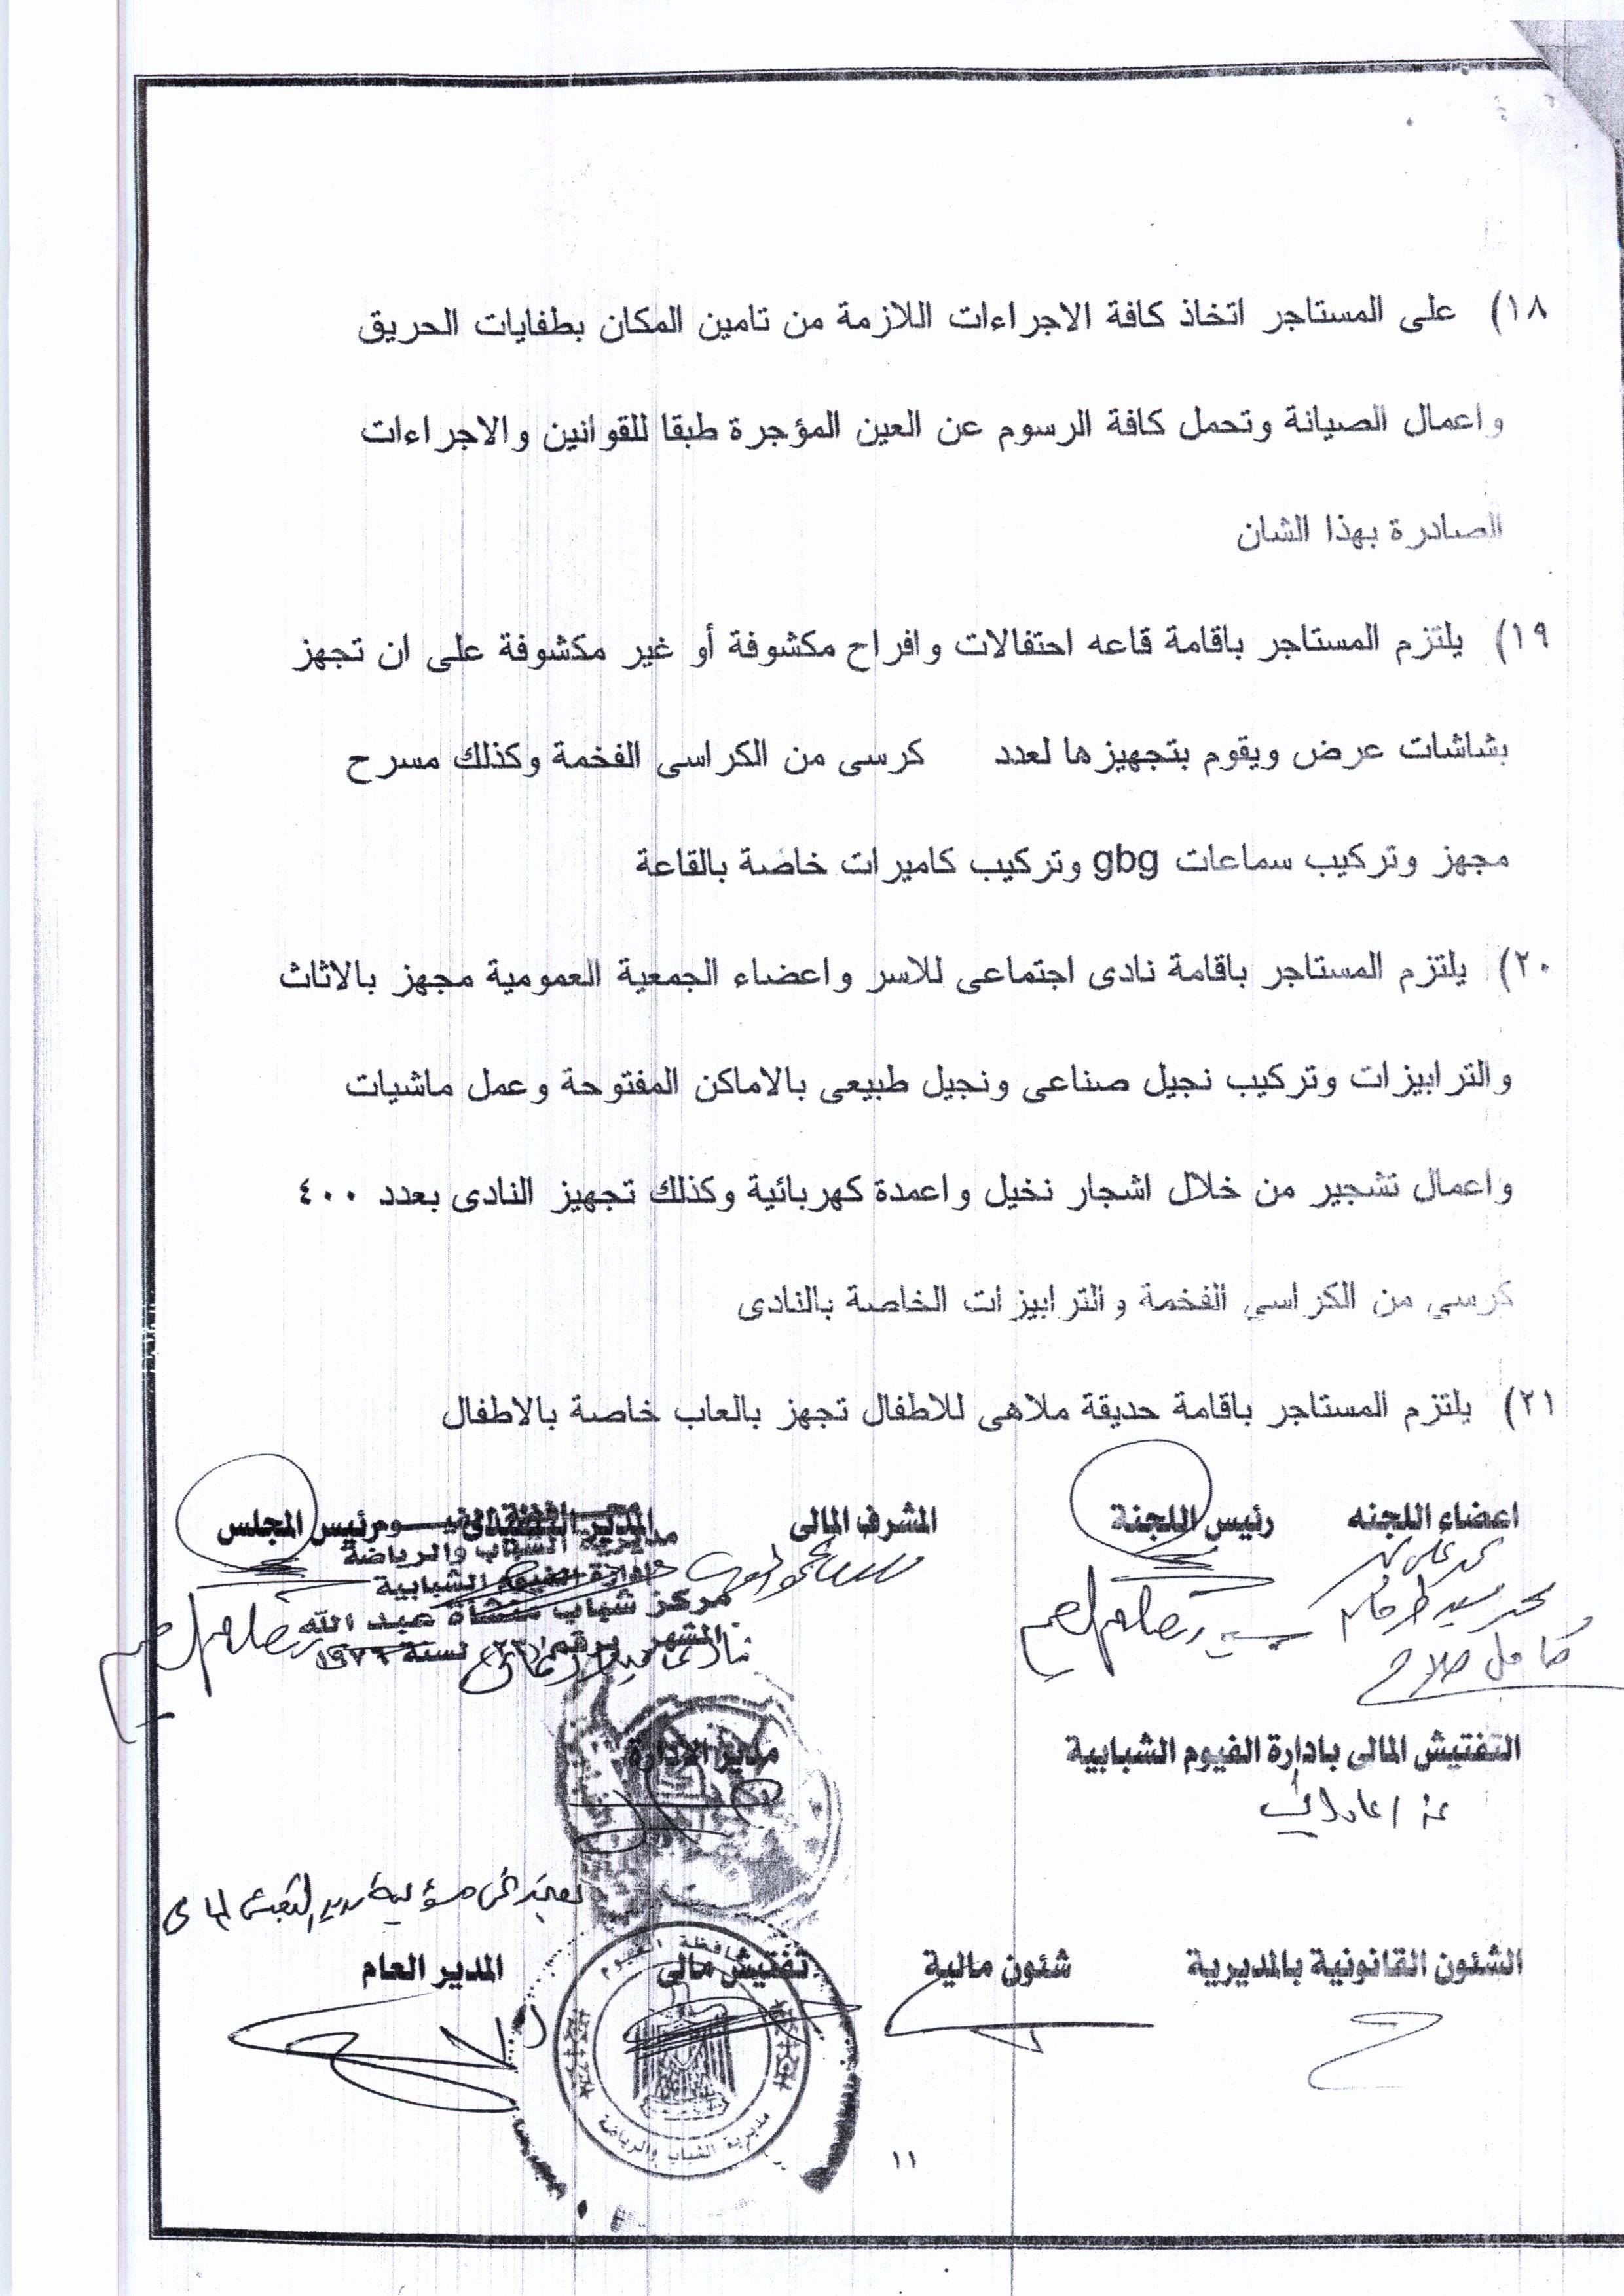 ١٨) على المستاجر اتخاذ كافة الاجراءات اللازمة من تامين المكان بطفايات الحريق
واعمال الصيانة وتحمل كافة الرسوم عن العين المؤجرة طبقا للقوانين والاجراءات
الصادرة بهذا الشان
١٩) يلتزم المستاجر باقامة قاعه احتفالات وافراح مكشوفة أو غير مكشوفة على ان تجهز
بشاشات عرض ويقوم بتجهيزها لعدد كرسى من الكراسى الفخمة وكذلك مسرح
مجهز وتركيب سماعات gbg وتركيب كاميرات خاصة بالقاعة
٢٠) يلتزم المستاجر باقامة نادى اجتماعى للاسر واعضاء الجمعية العمومية مجهز بالاثاث
والترابيزات وتركيب نجيل صناعى ونجيل طبيعى بالاماكن المفتوحة وعمل ماشيات
واعمال تشجير من خلال اشجار نخيل واعمدة كهربائية وكذلك تجهيز النادى بعدد ٤٠٠
كرسي من الكراسي الفخمة والترابيزات الخاصة بالنادى
٢١) يلتزم المستاجر باقامة حديقة ملاهى للاطفال تجهز بالعاب خاصة بالاطفال
اعضاء اللجنه رئيس اللجنة المشرف المالى المدير التنفيذى رئيس المجلس
مديرية الشباب والرياضة
ادارة الفيوم الشبابية
مركز شباب منشأة عبد الله
المشهر برقم لسنة ١٩٧٦
كامل صلاح
التفتيش المالى بادارة الفيوم الشبابية مدير الادارة
الشئون القانونية بالمديرية شئون مالية تفتيش مالى المدير العام
محافظة الفيوم
مديرية الشباب والرياضة
١١